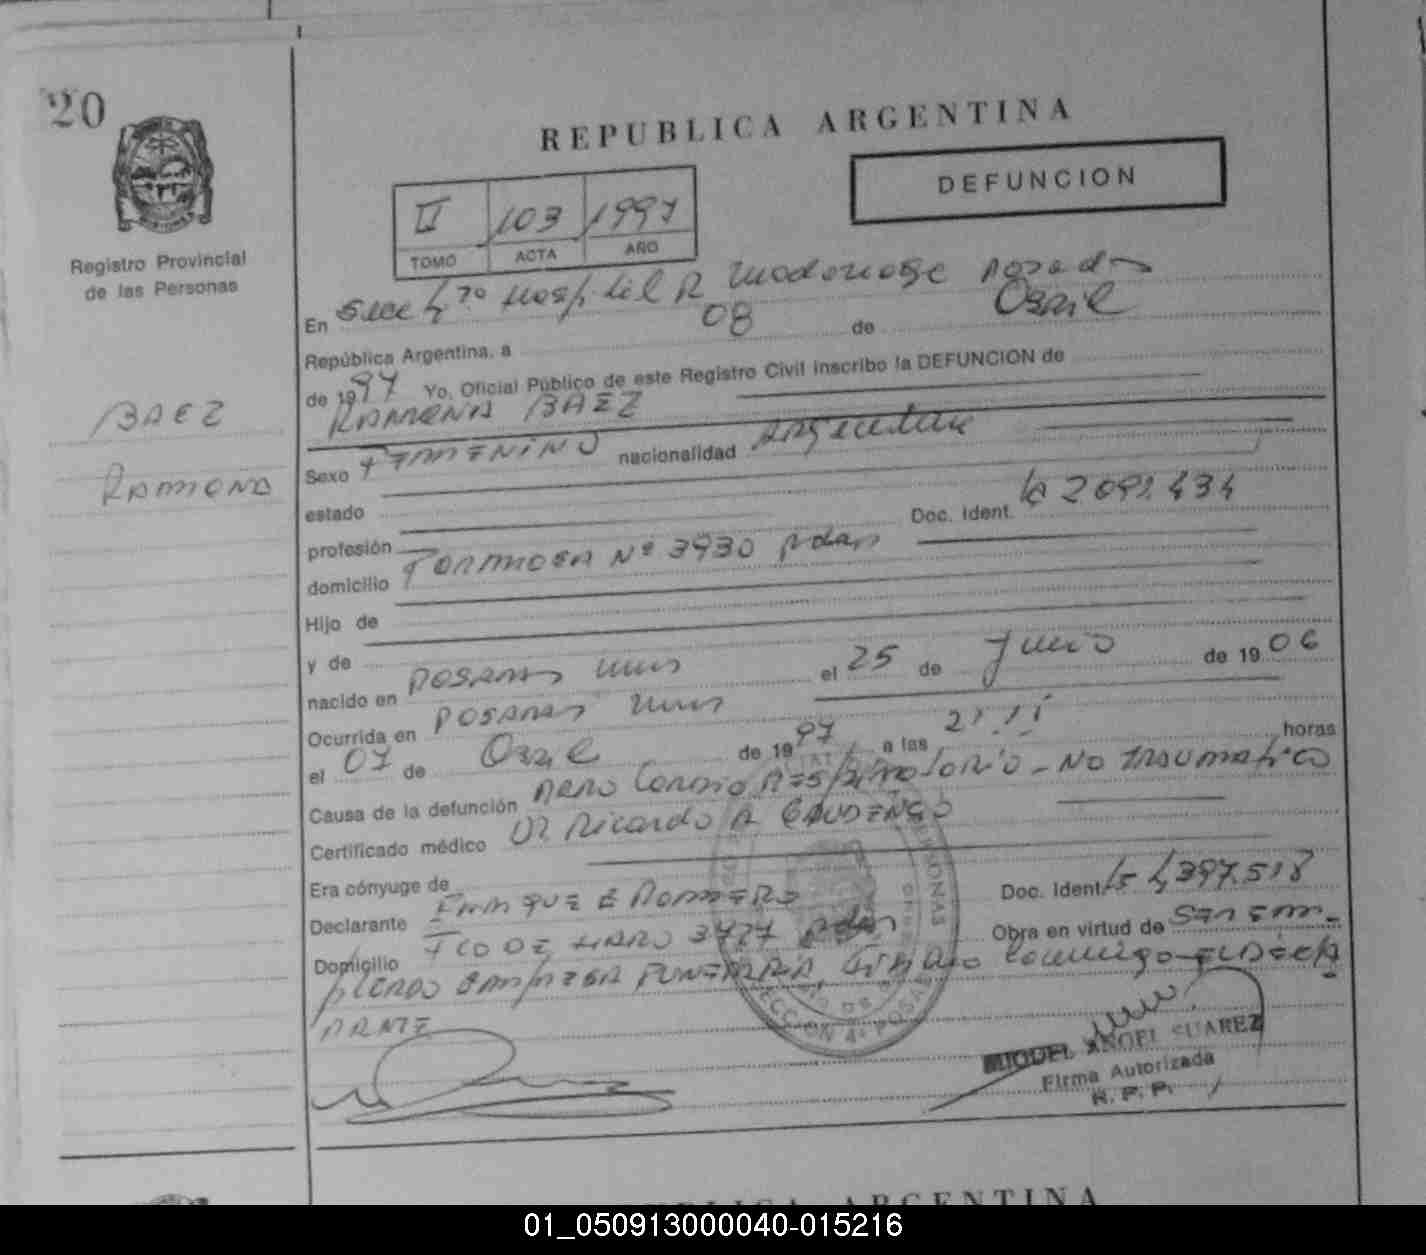 20
REPUBLICA ARGENTINA
DEFUNCION
II 103 1997
TOMO ACTA AÑO
Registro Provincial
de las Personas
BAEZ
RAMONA
En Secc 4ta Hospital R Madariaga Posadas
República Argentina, a 08 de Abril
de 1997 Yo, Oficial Público de este Registro Civil inscribo la DEFUNCION de
RAMONA BAEZ
Sexo FEMENINO nacionalidad Argentina
estado
profesión Doc. Ident.
domicilio FORMOSA Nº 3930 Pdas
Hijo de
y de
nacido en POSADAS Mnes el 25 de Junio de 1906
Ocurrida en POSADAS Mnes
el 07 de Abril de 1997 a las horas
Causa de la defunción PARO CARDIO RESPIRATORIO - NO TRAUMATICO
Certificado médico DR Ricardo A GAUDENCIO
Era cónyuge de
Declarante ENRIQUE E ROMERO Doc. Ident.
Domicilio FCO DE HARO 3427 Pdas Obra en virtud de SER EM-
PLEADO EMPRESA FUNERARIA, conmigo
MIGUEL ANGEL SUAREZ
Firma Autorizada
R. P. P.
REPUBLICA ARGENTINA
01_050913000040-015216